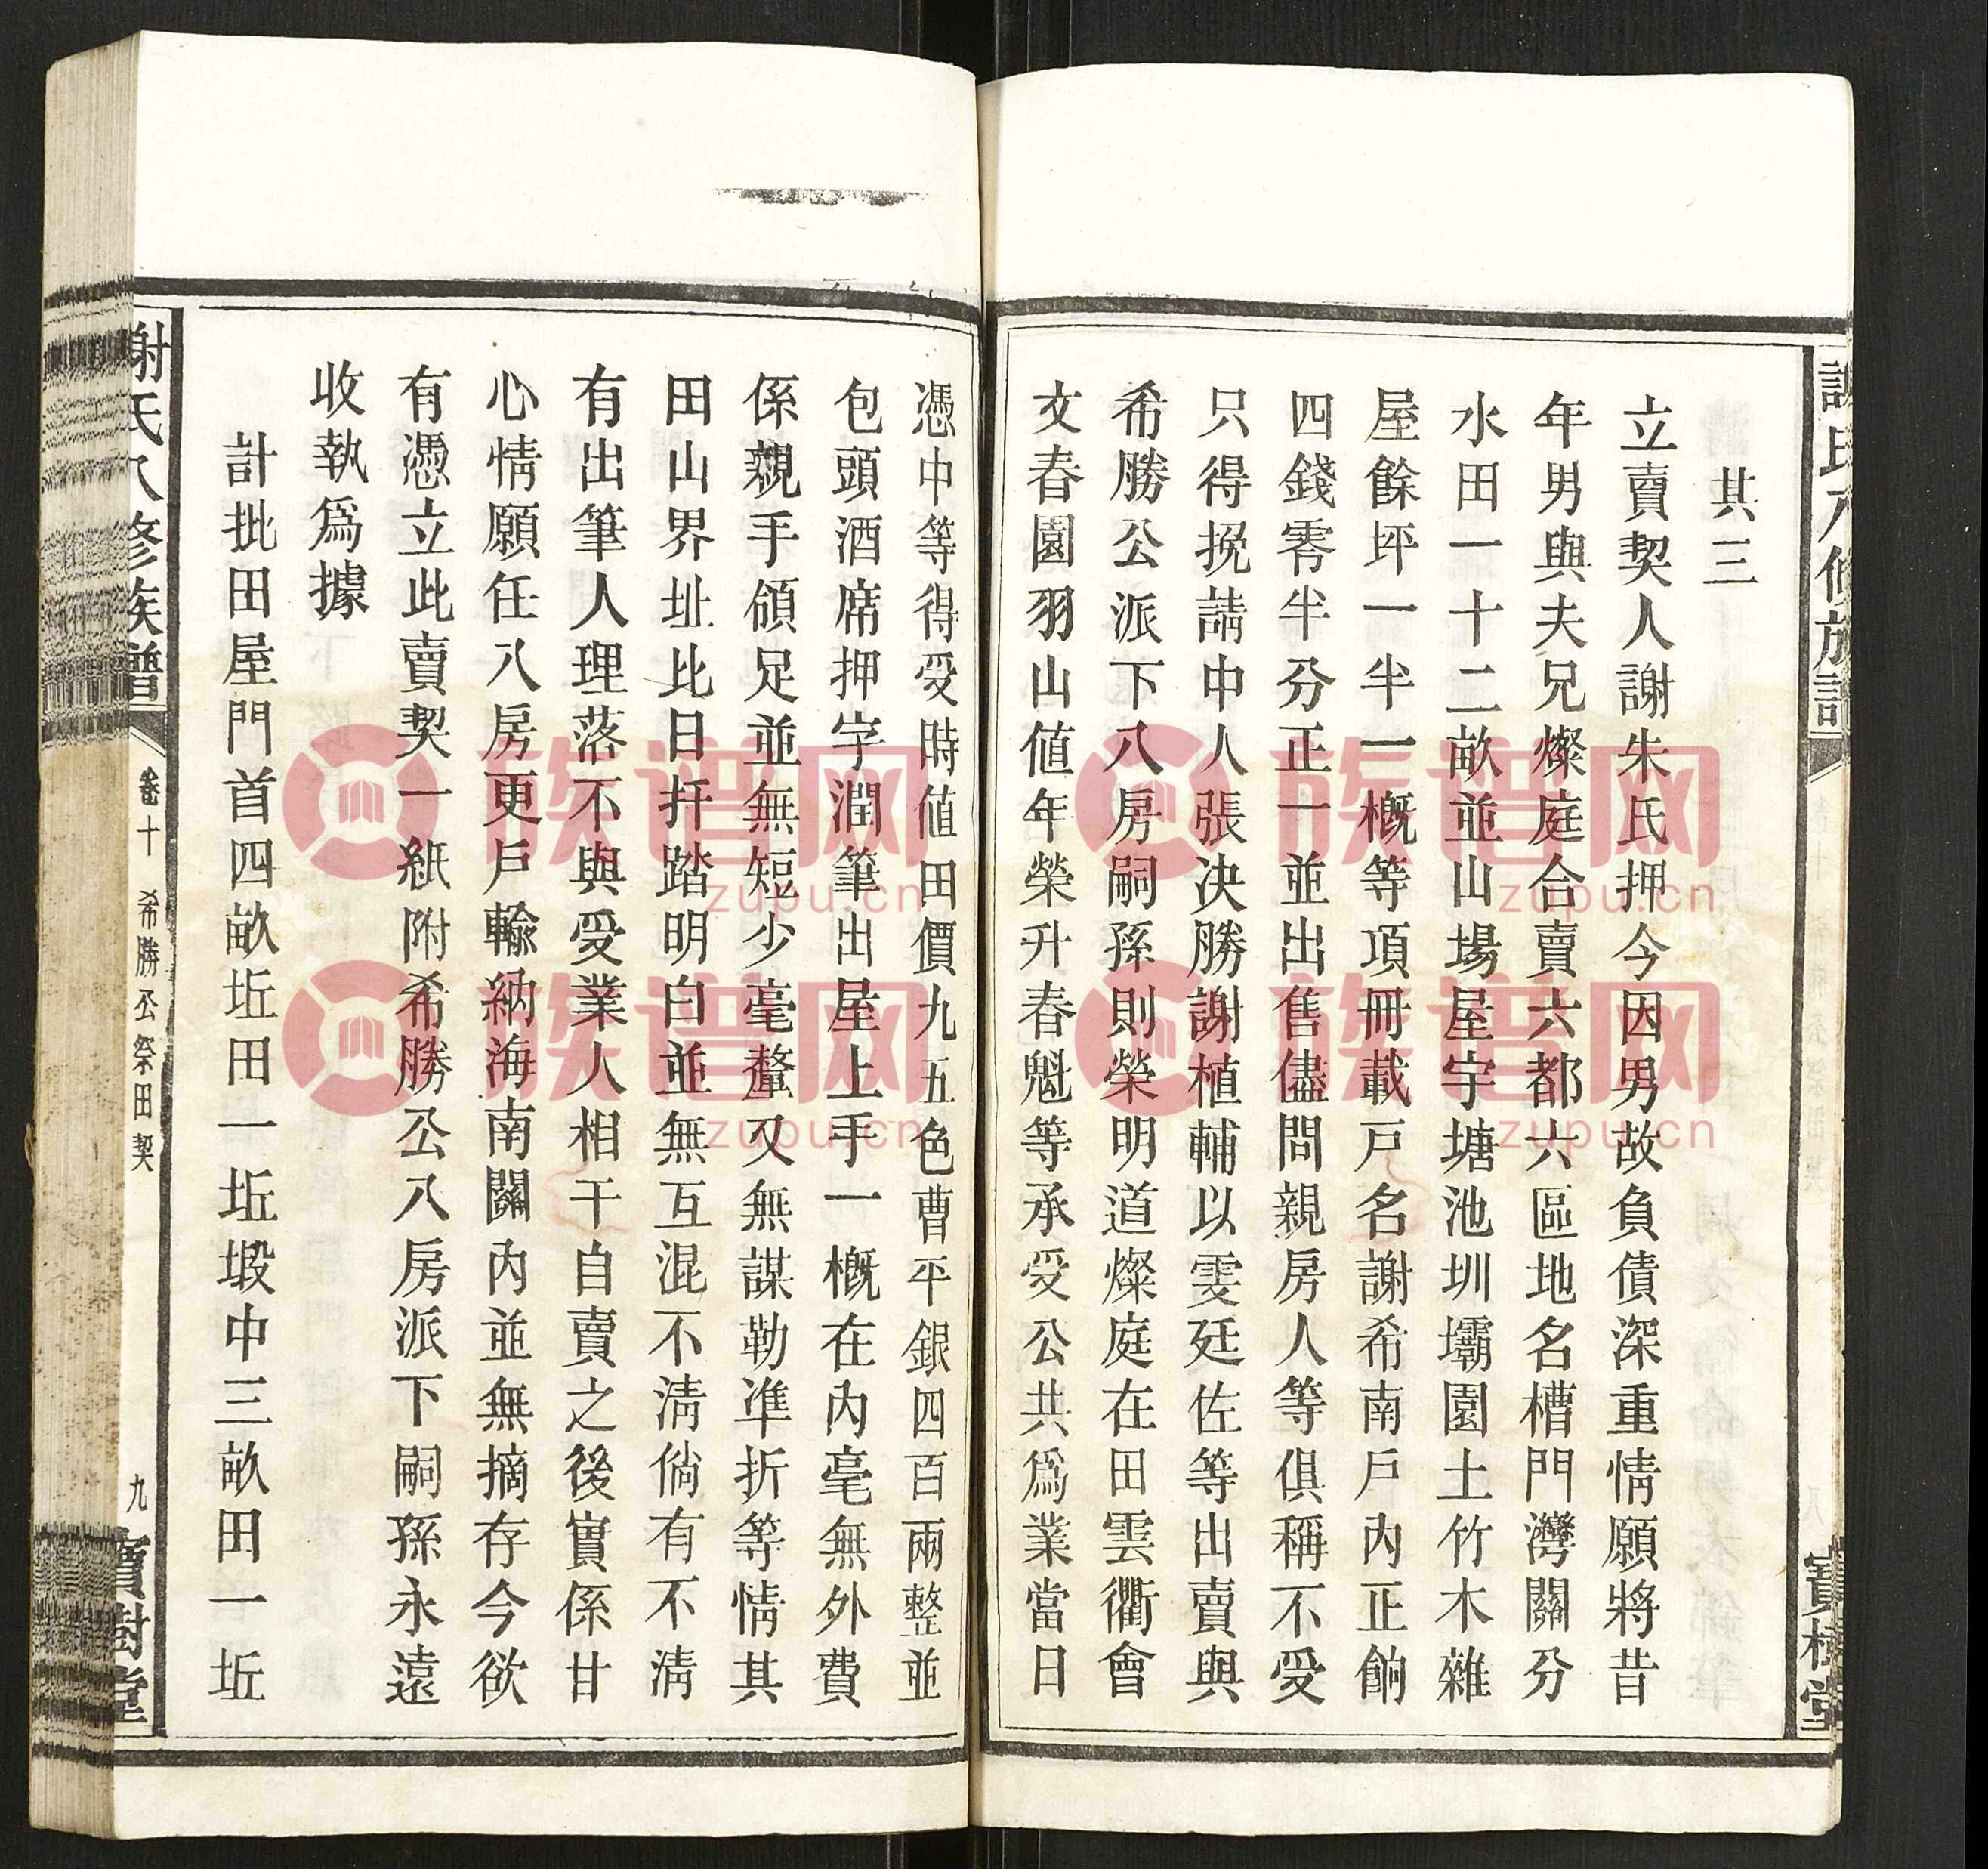 其三
立賣契人謝朱氏押今因男故負債深重情願將昔
年男與夫兄燦庭合賣六都六區地名槽門灣關分
水田一十二畝並山場屋宇塘池圳壩園土竹木雜
屋餘坪一半一概等項冊載戶名謝希南戶內正餉
四錢零半分正一並出售儘問親房人等俱稱不受
只得挽請中人張決勝謝植輔以雯廷佐等出賣與
希勝公派下八房嗣孫則榮明道燦庭在田雲衢會
文春園羽山値年榮升春魁等承受公共爲業當日
憑中等得受時値田價九五色曹平銀四百兩整並
包頭酒席押字潤筆出屋上手一概在內毫無外費
係親手領足並無短少毫釐又無謀勒準折等情其
田山界址比日扦踏明白並無互混不清倘有不清
有出筆人理落不與受業人相干自賣之後實係甘
心情願任八房更戶輸納海南關內並無摘存今欲
有憑立此賣契一紙附希勝公八房派下嗣孫永遠
收執爲據
計批田屋門首四畝坵田一坵塅中三畝田一坵
謝氏八修族譜
卷十
希勝公祭田契
九
寶樹堂
謝氏八修族譜
寶樹堂
族谱网
zupu.cn
族谱网
zupu.cn
族谱网
zupu.cn
族谱网
zupu.cn